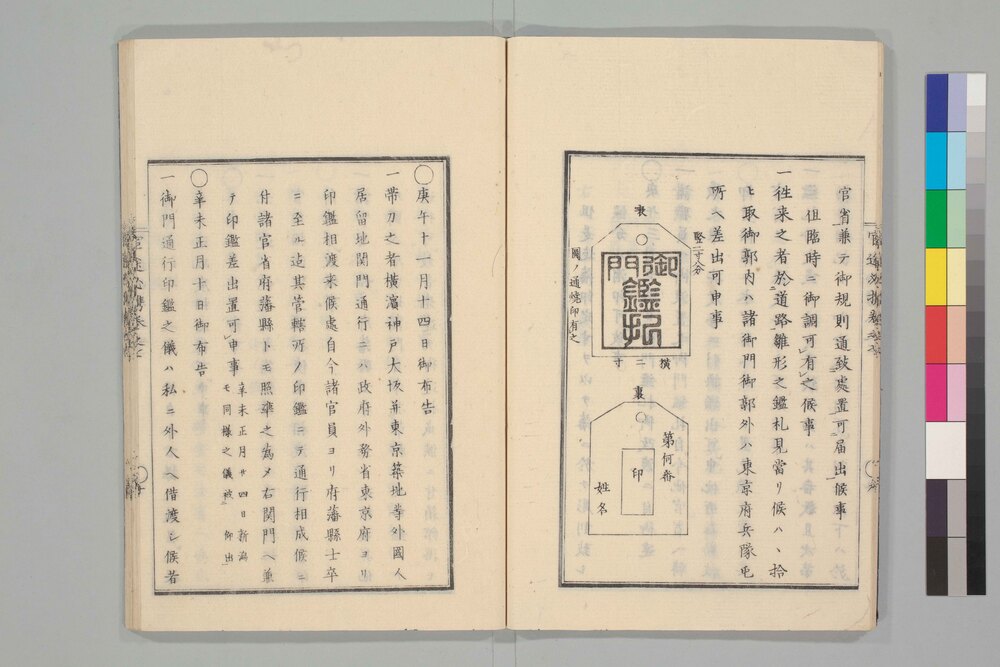 官省兼テ御規則通致處置可届出候事
但臨時ニ御調可有之候事
一往来之者於道路雛形之鑑札見當リ候ハヽ拾
ヒ取御郭内ハ諸御門御郭外ハ東京府兵隊屯
所ヘ差出可申事
竪二寸八分
表
御門鑑札
横二寸
圖ノ通燒印有之
裏
第何番
印
姓名
○庚午十一月十四日御布告
一帯刀之者横濱神戸大坂并東京築地等外國人
居留地関門通行ニハ政府外務省東京府ヨリ
印鑑相渡来候處自今諸官員ヨリ府藩縣士卒
ニ至ル迄其管轄所ノ印鑑ニテ通行相成候ニ
付諸官省府藩縣トモ照準之為メ右関門ヘ兼
テ印鑑差出置可申事
辛未正月廿四日新潟
モ同様之儀被仰出
○辛未正月十日御布告
一御門通行印鑑之儀ハ私ニ外人ヘ借渡シ候者